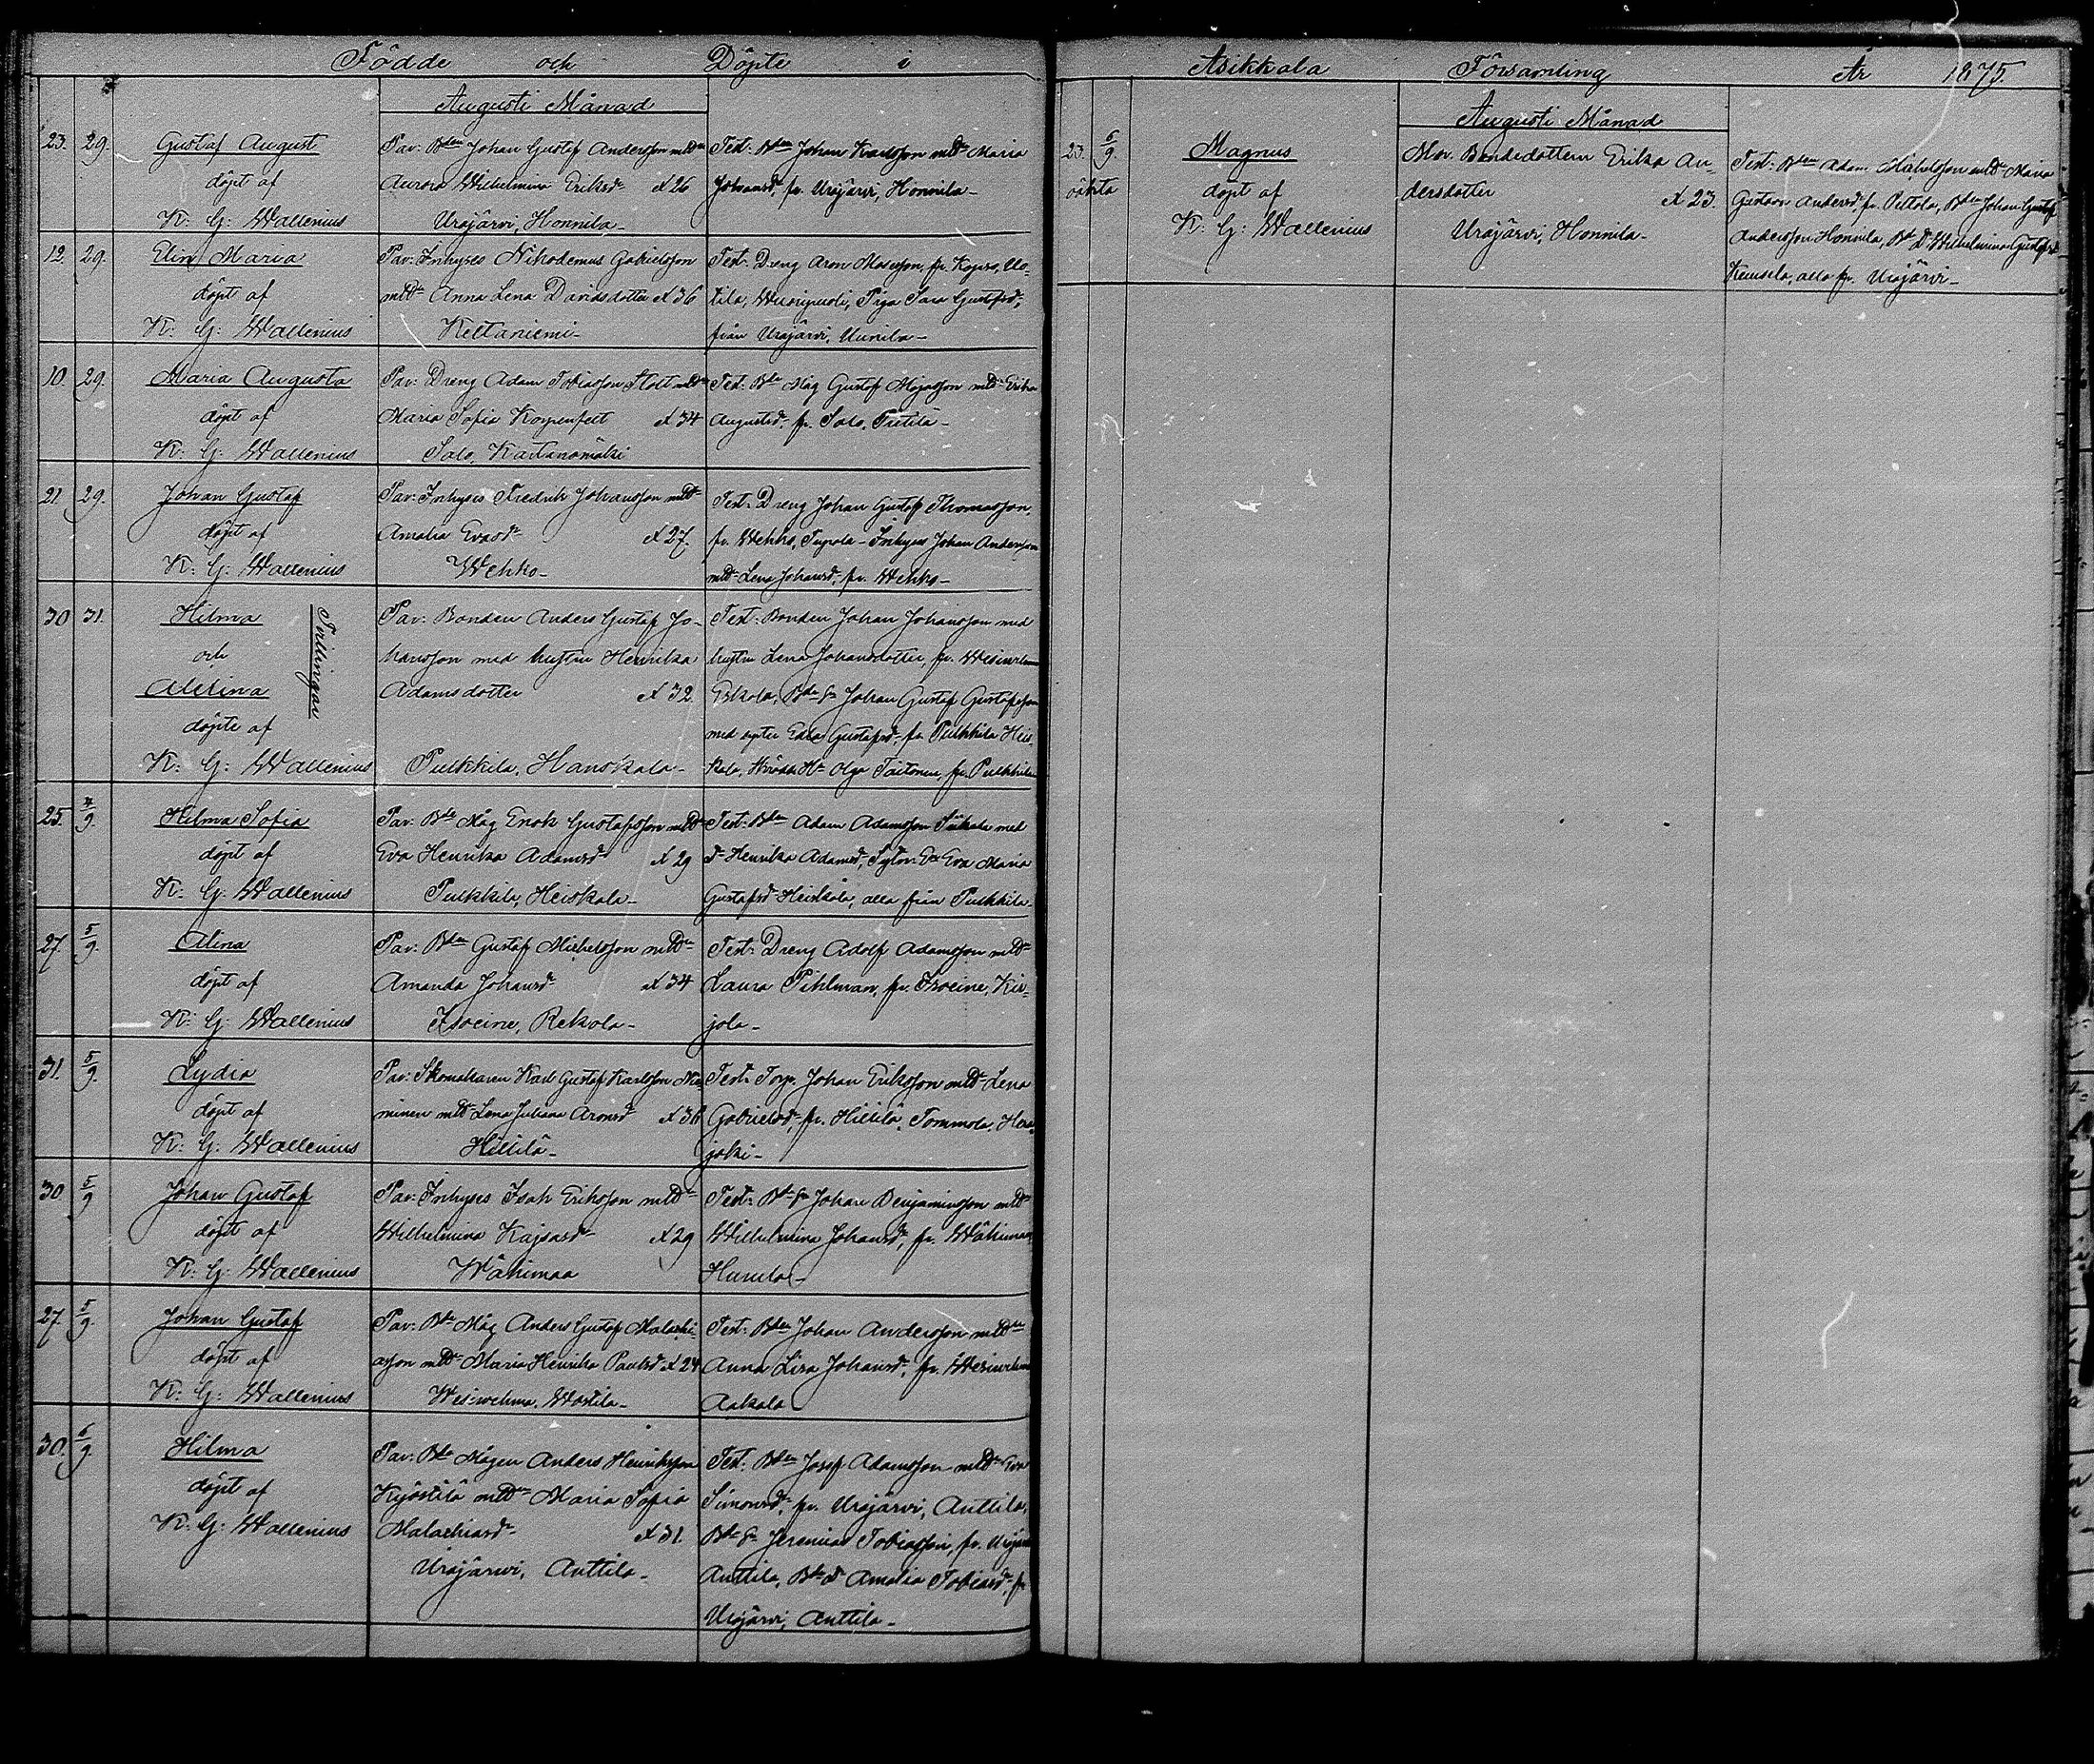 Födde och Döpte i
Augusti Månad
23. 29. Gustaf August
döpt af
K: G: Wallenius
Par: Bden Johan Gustaf Andersson mHn
Aurora Wilhelmina Eriksdr ad 26
Urajärvi, Honnila-
Test: Bden Johan Karlsson mHu Maria
Johansdr, fr. Urajärvi, Honnila-
12. 29. Elin Maria
döpt af
K: G: Wallenius
Par: Inhyses Nikodemus Gabrielsson
mHu Anna Lena Davidsdotter ad 36
Keltaniemi-
Test: Dreng Aron Mosesson, fr.
Piga Sara Gustafsdr,
från Urajärvi,
10. 29. Maria Augusta
döpt af
K: G: Wallenius
Par: Dreng Adam Tobiasson Stolt mHu
Maria Sofia Korpenfelt ad 34
Salo, Kartanomäki
Test: Bde Måg Gustaf mHu Erika
Augustsdr fr. Salo,
21 29. Johan Gustaf
döpt af
K: G: Wallenius
Par: Inhyses Fredrik Johansson mHu
Amalia Evasdr ad 27.
Wehko-
Test: Dreng Johan Gustaf Thomasson,
fr. Wehko, Inhyses Johan Andersson
mHu Lena Johansdr, fr. Wehko-
30 31. Hilma
och
Alexina
Tvillingar
döpte af
K: G: Wallenius
Par: Bonden Anders Gustaf Jo-
hansson med hustru Henrika
Adamsdotter ad 32.
Pulkkila, Hanskala-
Test: Bonden Johan Johansson med
hustru Lena Johansdotter, fr. Wesivehma
Eskola, Bde Sn Johan Gustaf Gustafsson
med syster Edla Gustafsdr, fr. Pulkkila Heis-
kala, Olga fr. Pulkkila
25. 4/9. Hilma Sofia
döpt af
K: G: Wallenius
Par: Bde Måg Enok Gustafsson mHu
Eva Henrika Adamsdr ad 29
Pulkkila, Heiskala-
Test: Bden Adam Adamsson med
dr Henrika Adamsdr, Eva Maria
Gustafsdr Heiskala, alla från Pulkkila-
27. 5/9. Alina
döpt af
K: G: Wallenius
Par: Bden Gustaf Michelsson mHu
Amanda Johansdr ad 34
Isoeine, Rekola-
Test: Dreng Adolf Adamsson mHu
Laura Pihlman, fr. Isoeine, Kir-
jola-
31. 5/9. Lydia
döpt af
K: G: Wallenius
Par: Skomakaren Karl Gustaf Karlsson Nie-
minen mHu Lena Juliana Aronsdr ad 36
Hillilä-
Test: Torp. Johan Eriksson mHu Lena
Gabrielsdr, fr. Hillilä, Tommola,
joki-
30 5/9 Johan Gustaf
döpt af
K: G: Wallenius
Par: Inhyses Isak Eriksson mHu
Wilhelmina Kajsasdr ad 29
Wähimaa
Test: Bde Sn Johan Benjaminsson mHu
Wilhelmina Johansdr, fr. Wähimaa,
27. 5/9. Johan Gustaf
döpt af
K: G: Wallenius
Par: Bde Måg Anders Gustaf Malaki-
asson mHu Maria Henrika Paulsdr ad 24
Wesivehma,
Test: Bden Johan Andersson mHu
Anna Lisa Johansdr, fr. Wesivehma
30. 6/9. Hilma
döpt af
K: G: Wallenius
Par: Bde Mågen Anders Henriksson
Kyöstilä mHu Maria Sofia
Malachiasdr ad 31.
Urajärvi, Anttila-
Test: Bden Josef Adamsson mHu Eva
Simonsdr, fr. Urajärvi, Anttila,
Bde Sn Jeremias Tobiasson, fr. Urajärvi
Anttila, Bde dr Amalia Tobiasdr, fr
Urajärvi, Anttila-
Asikkala Församling År 1875.
Augusti Månad
23. 5/9. Magnus
oäkta döpt af
K: G: Wallenius
Mor. Bondedottern Erika An-
dersdotter ad 23.
Urajärvi, Honnila-
Test: Bden Adam Michelsson mHu Maria
Gustava Andersdr, fr. Peltola, Bden Johan Gustaf
Andersson Honnila, Bde Dr Wilhelmina Gustafsdr
alla fr. Urajärvi-